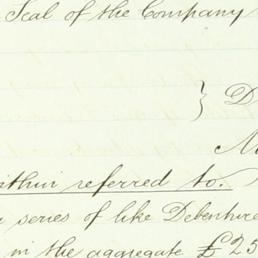 Seal of the Company
} D
within referred to.
series of like Debenture
in the aggregate £25